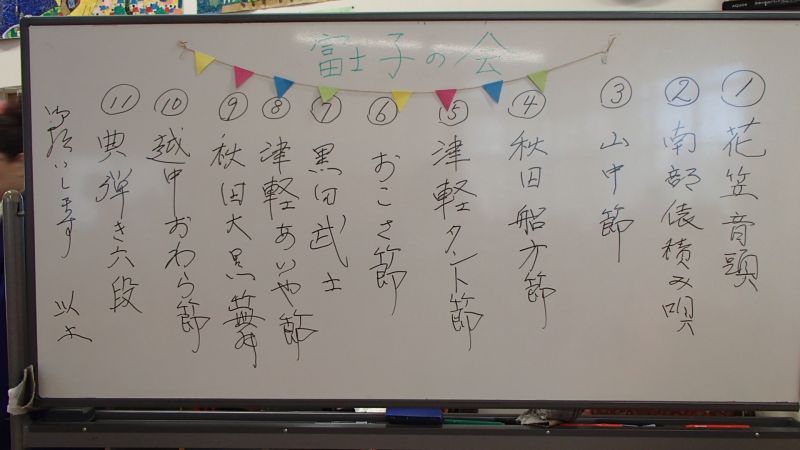 富士子の会
① 花笠音頭
② 南部俵積み唄
③ 山中節
④ 秋田船方節
⑤ 津軽タント節
⑥ おこさ節
⑦ 黒田武士
⑧ 津軽あいや節
⑨ 秋田大黒舞
⑩ 越中おわら節
⑪ 典弾き六段
お願いします 以上